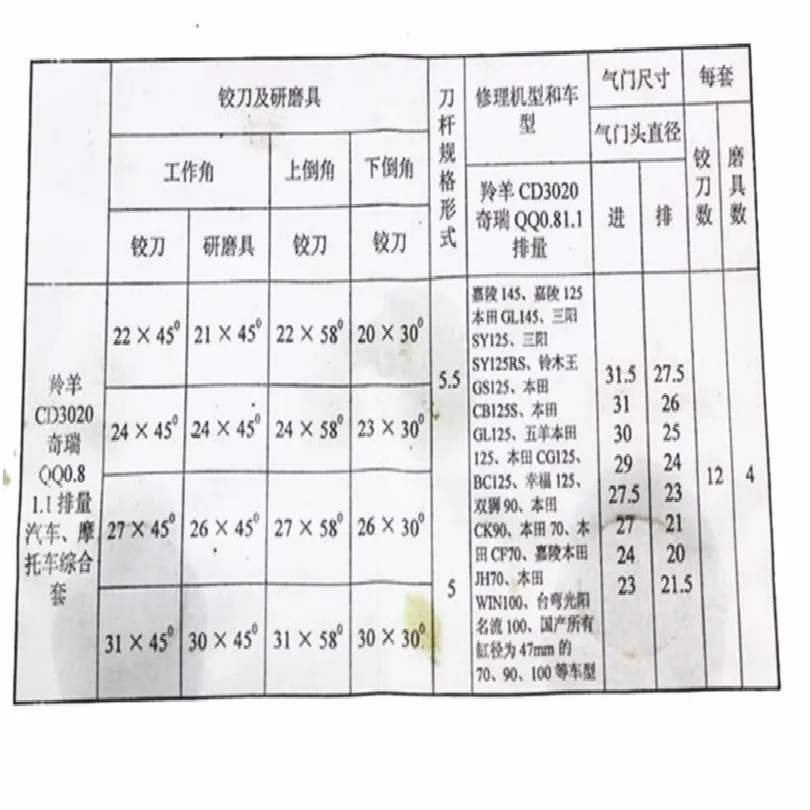 铰刀及研磨具
刀杆规格形式
修理机型和车
型
气门尺寸
每套
工作角
上倒角
下倒角
气门头直径
铰刀数
磨具数
铰刀
研磨具
铰刀
铰刀
羚羊 CD3020
奇瑞 QQ0.81.1
排量
进
排
羚羊
CD3020
奇瑞
QQ0.8
1.1 排量
汽车、摩
托车综合
套
22×45⁰ 21×45⁰ 22×58⁰ 20×30⁰
24×45⁰ 24×45⁰ 24×58⁰ 23×30⁰
27×45⁰ 26×45⁰ 27×58⁰ 26×30⁰
31×45⁰ 30×45⁰ 31×58⁰ 30×30⁰
5.5
5
嘉陵 145、嘉陵 125
本田 GL145、三阳
SY125、三阳
SY125RS、铃木王
GS125、本田
CB125S、本田
GL125、五羊本田
125、本田 CG125、
BC125、幸福 125、
双狮 90、本田
CK90、本田 70、本
田 CF70、嘉陵本田
JH70、本田
WIN100、台弯光阳
名流 100、国产所有
缸径为 47mm 的
70、90、100 等车型
31.5 27.5
31 26
30 25
29 24
27.5 23
27 21
24 20
23 21.5
12
4